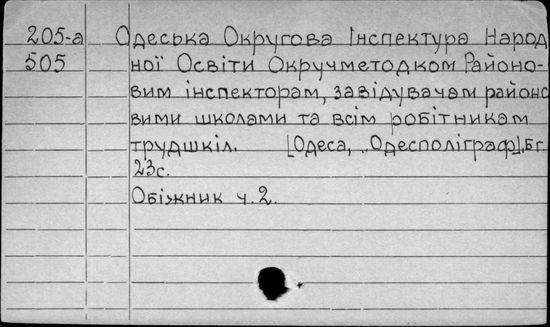 205-а Одеська Округова Інспектура Народ
505 ної Освіти Окручметодком Районо-
вим інспекторам, завідувачам районо
вими школами та всім робітникам
трудшкіл. [Одеса, „Одесполіграф], Б г.
23с.
Обіжник ч. 2.